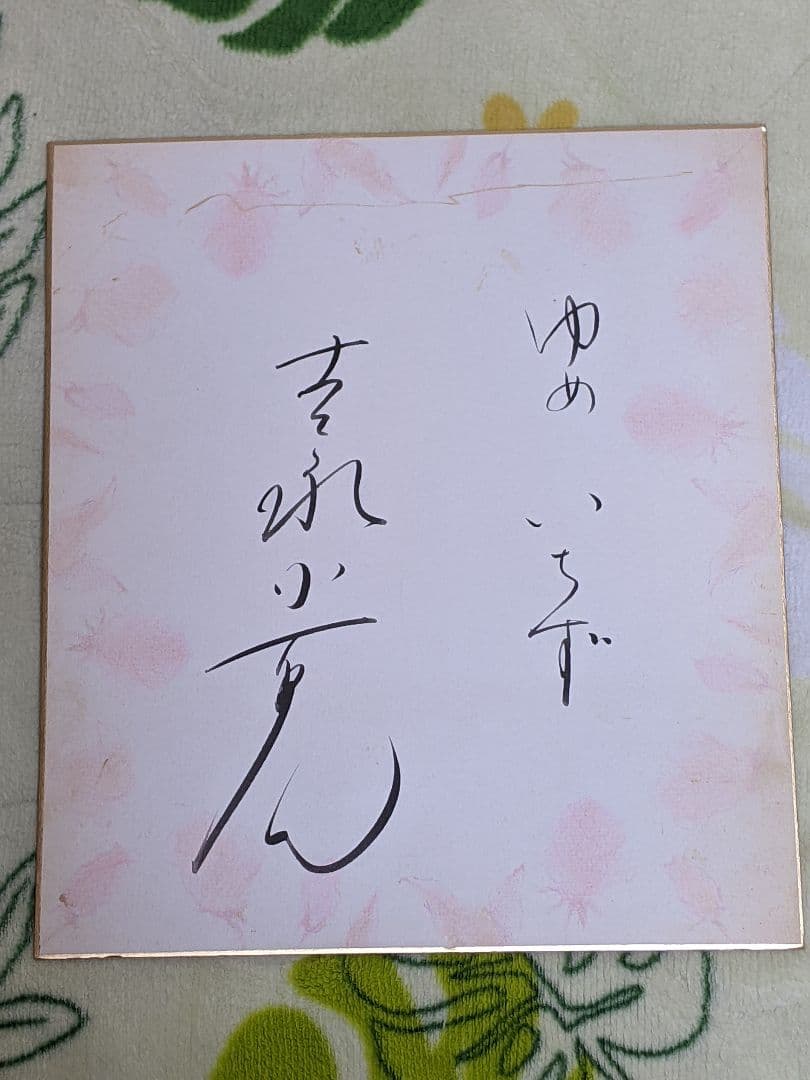 ゆめ いちず
吉永小百合